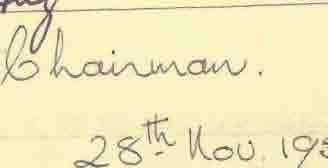 Chairman.
28th Nov.